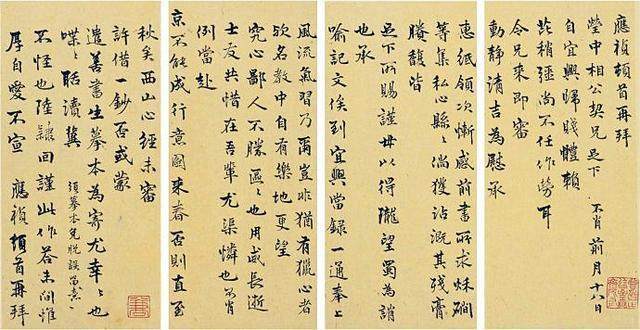 應禎頓首再拜
瑩中相公契兄足下 不肖前月十八日
自宜興歸賤體賴
芘稍彊尚不任作勞耳
令兄來即審
動靜清吉為慰承
惠紙領次慚感前書所求秌磵
等集私心縣〻倘獲沾溉其殘膏
賸馥皆
足下所賜謹毋以得隴望蜀為誚
也承
喻記文俟到宜興當錄一通奉上
風流氣習乃爾豈非猶有獵心者
欤名教中自有樂地更望
究心鄙人不勝區〻也用威長逝
士友共惜在吾輩尤憐也不肖
例當赴
京不能成行意圖來春否則直至
秋矣西山心經未審
許借一鈔否或蒙
遣善書生摹本為寄尤幸〻也
喋〻聒瀆冀 須摹本免脫誤留意
不怪也陸隸回謹此作答未間惟
厚自愛不宣 應禎頓首再拜